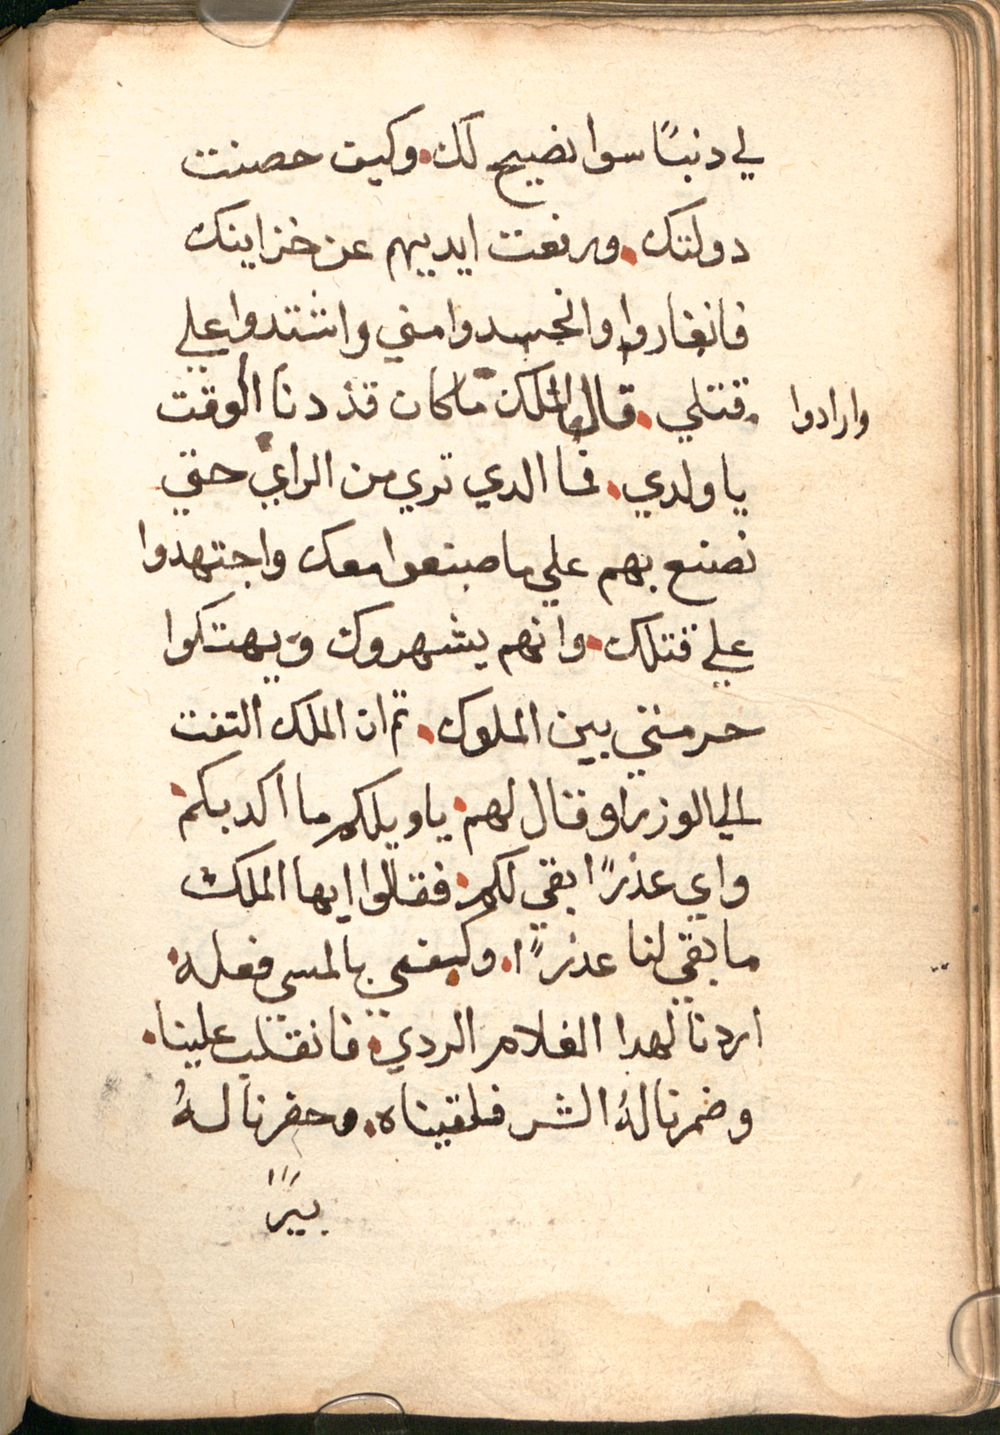 لي دنبًا سوا نضيح لك. وكيف حصنت
دولتك. ورفعت ايديهم عن خزاينك
فانغاروا وانحسدوا مني واشتدوا علي
وارادوا
قتلي. قال الملك ماكان قد دنا الوقت
ياولدي. فما الدي تري من الراي حتي
نصنع بهم علي ما صنعوا معك واجتهدوا
علي قتلك. وانهم يشهروك ويهتكوا
حرمتي بين الملوك. تم ان الملك التفت
الي الوزرا وقال لهم. ياويلكم ما اكدبكم.
واي عذرًا ابقي لكم. فقالوا ايها الملك
ما بقي لنا عذرًا. وكيفي بالمسي فعله.
اردنا لهدا الغلام الردي. فانقلب علينا.
وضمرنا لهُ الشر فلقيناه. وحفرنا لهُ
بيرًا